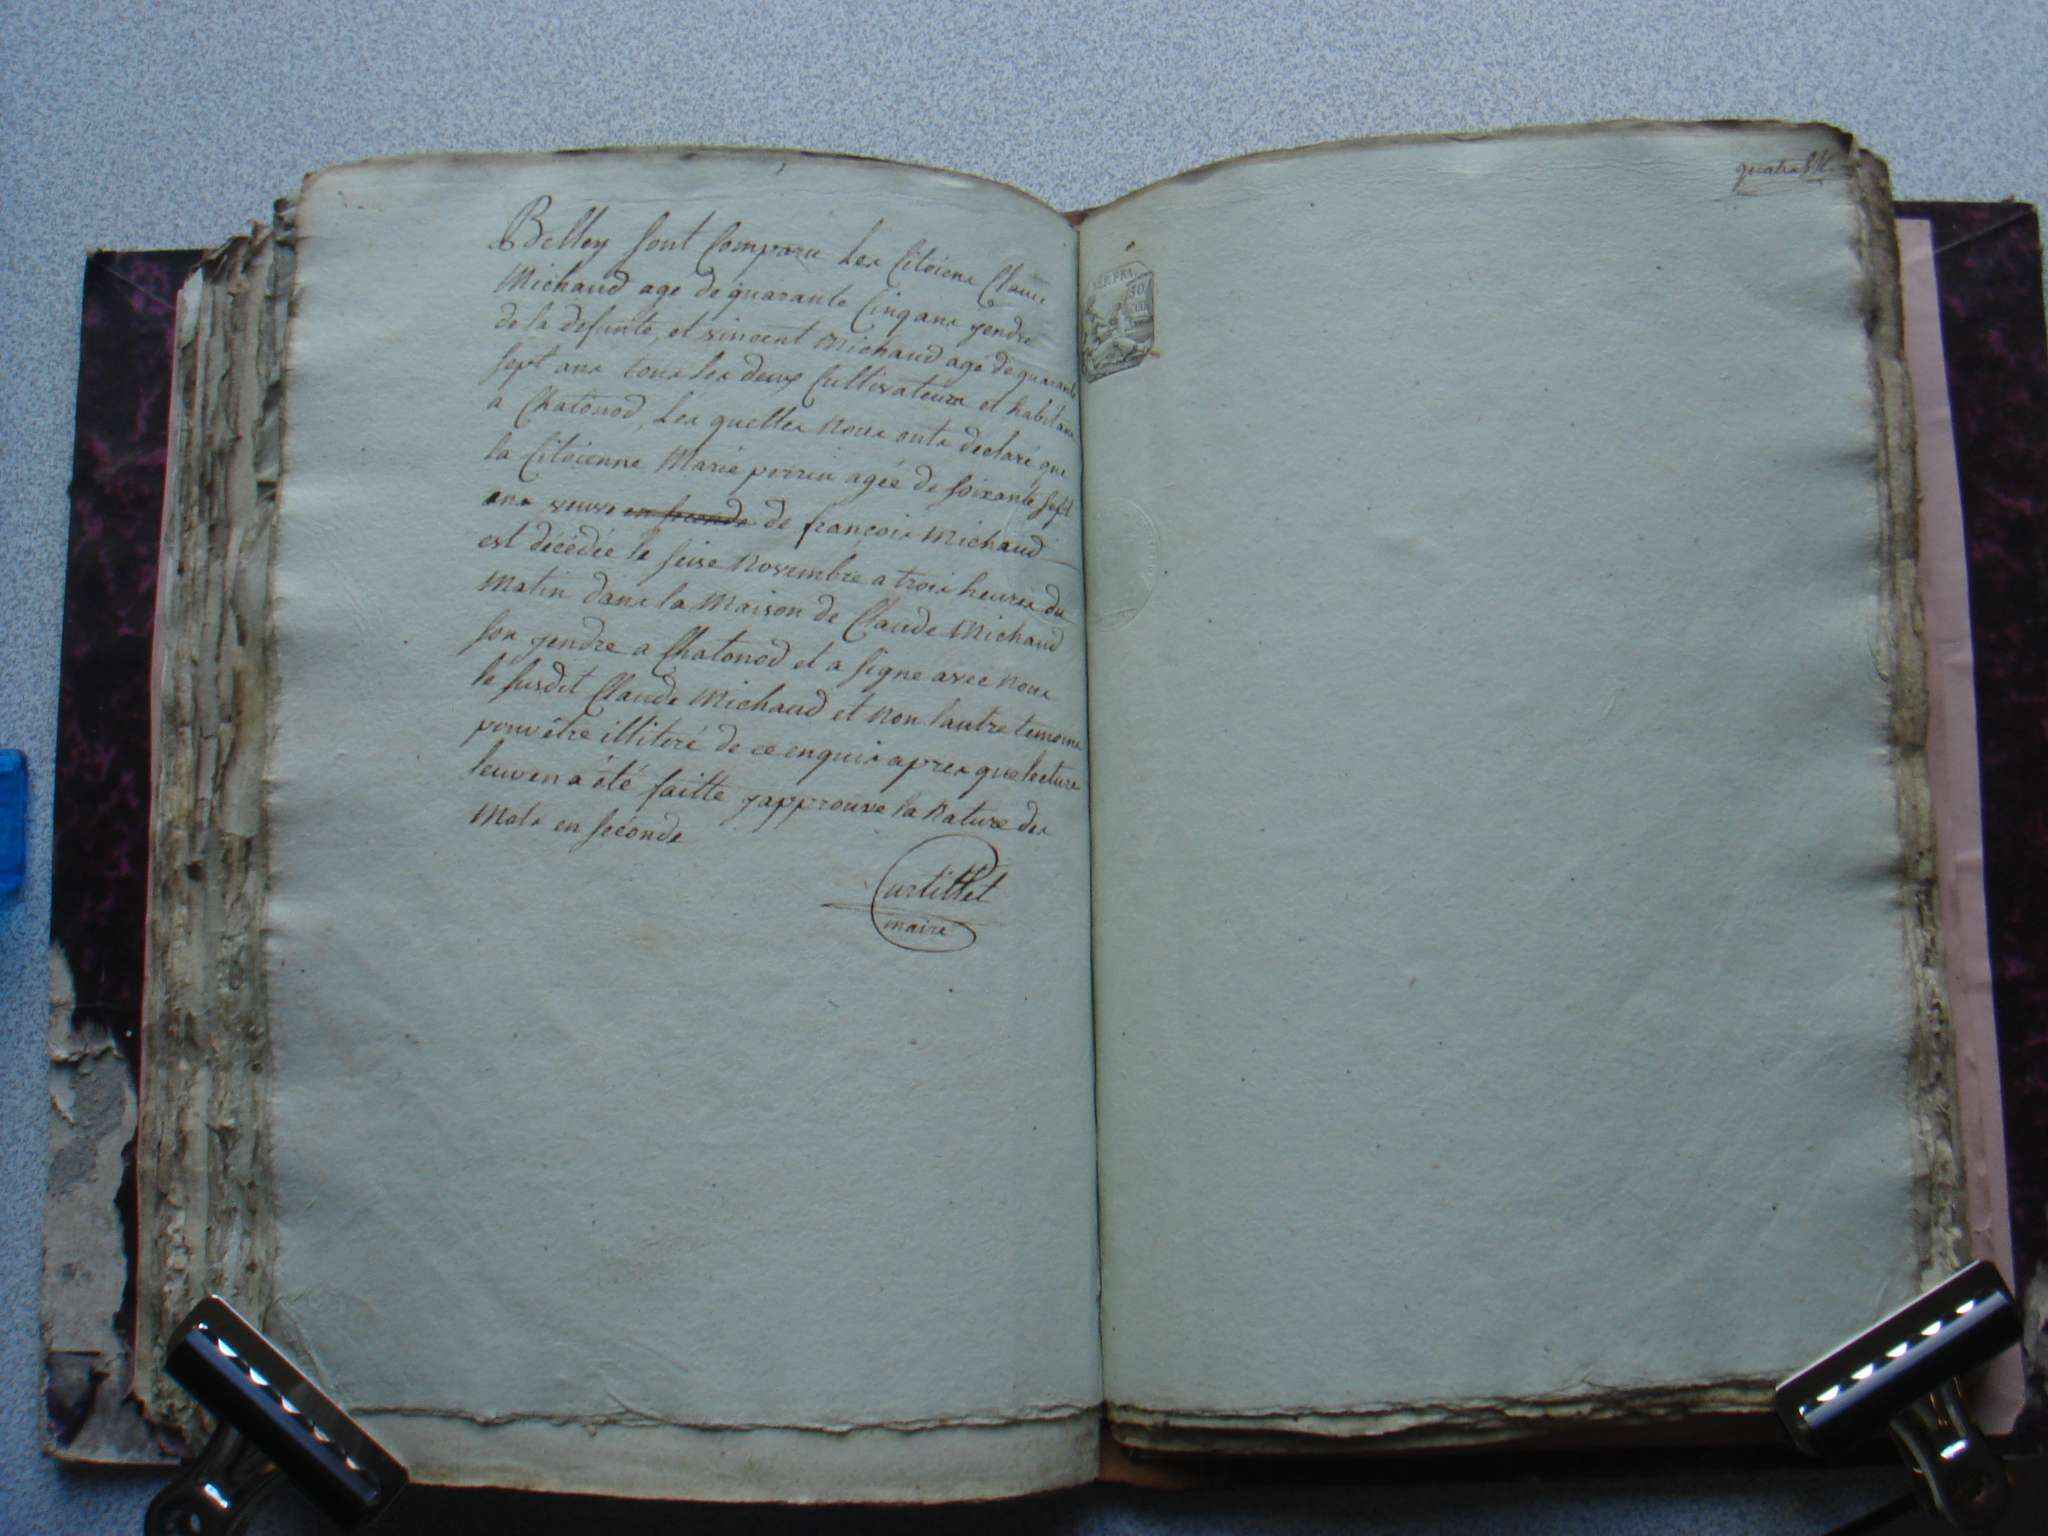 Belley sont Comparu Les Citoiens Claude
Michaud age de quarante Cinq ans gendre
de la defunte, et vincent Michaud agé de quarante
sept ans tous les deux Cultivateurs et habitans
a Chatonod, Les quelles nous onts declaré que
la Citoienne Marie perrin agée de soixante sept
ans veuve en seconde de françois Michaud
est décédée le seise novembre a trois heures du
Matin dans la Maison de Claude Michaud
son gendre a Chatonod et a signe avec nous
le susdit Claude Michaud et non lautre temoins
pour être illiteré de ce enquis apres que lecture
leur en a été faitte japprouve la Rature des
Mots en seconde
Curtillet
maire
quatre
REP. FRA.
50